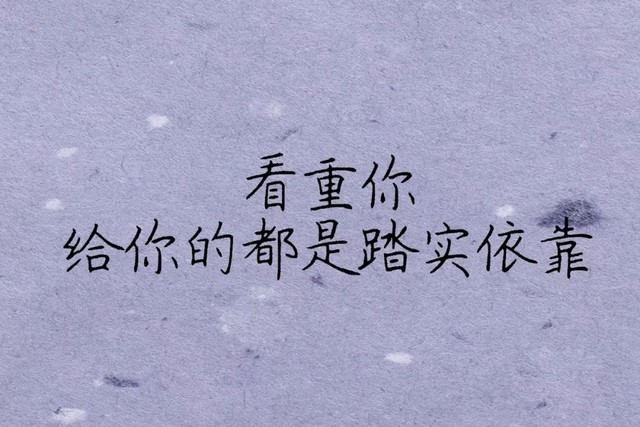 看重你
给你的都是踏实依靠